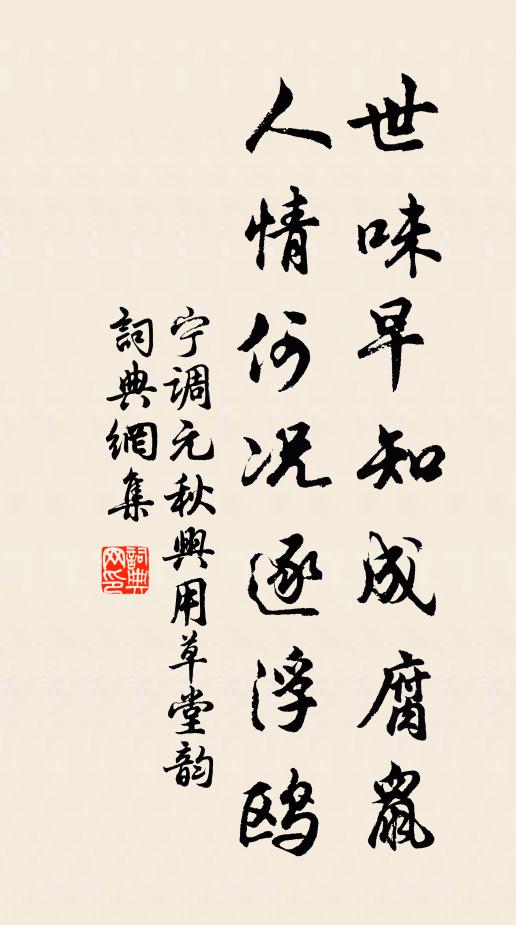 世味早知成腐鼠
人情何况逐浮鸥
宁调元秋興用草堂韵
詞典網集
詞典网印